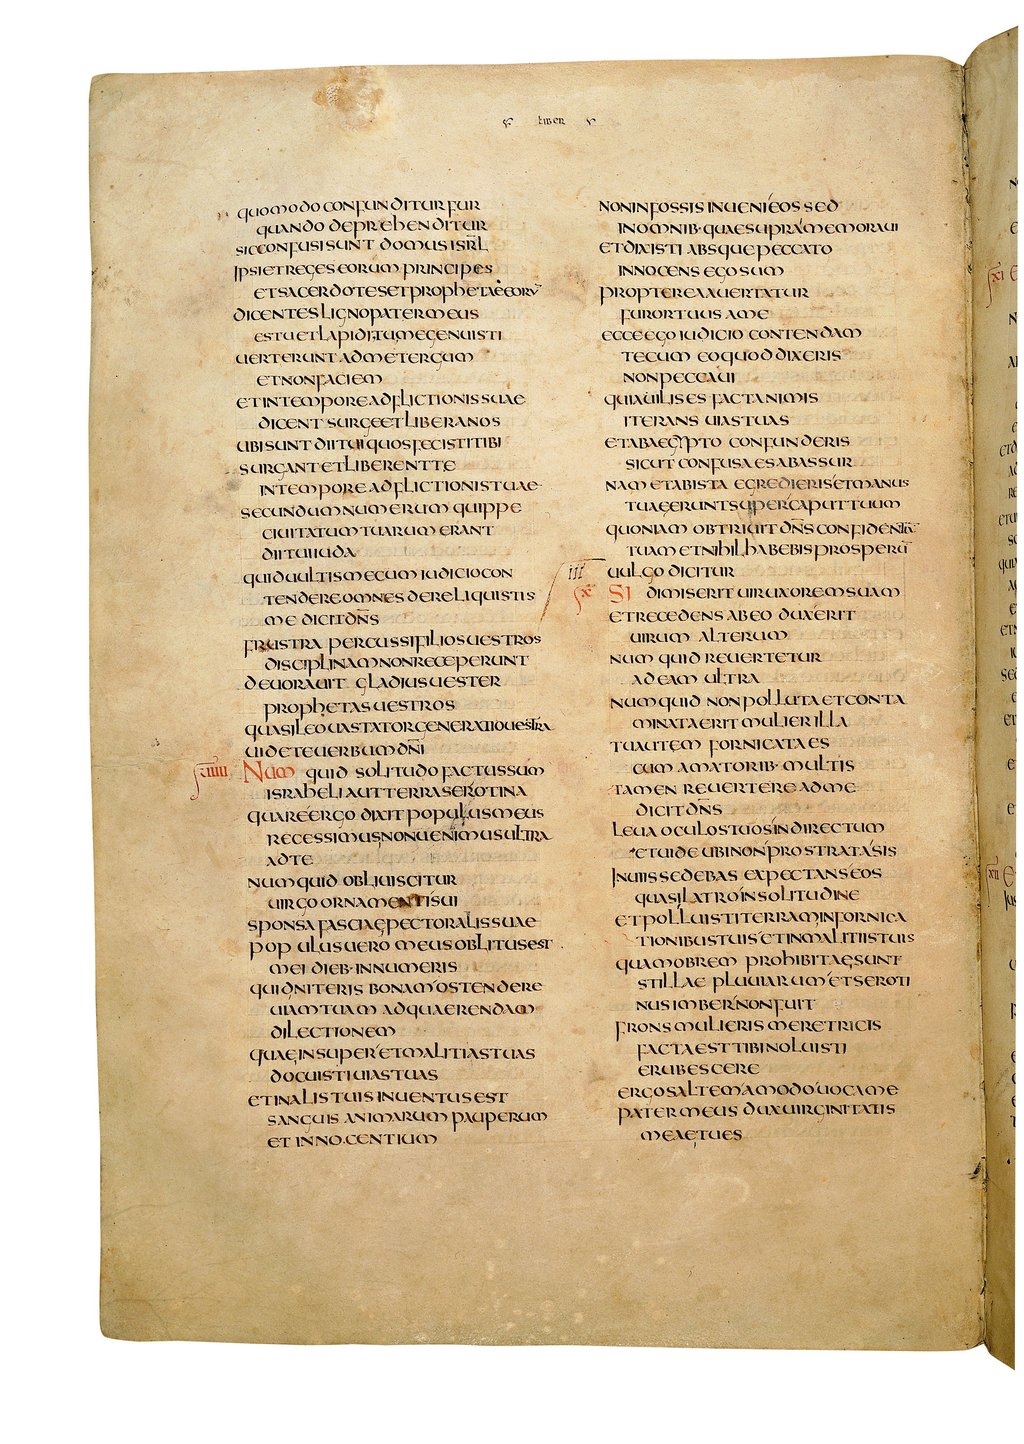 LIBER
QUOMODO CONFUNDITUR FUR
QUANDO DEPREHENDITUR
SIC CONFUSI SUNT DOMUS ISRL
IPSI ET REGES EORUM PRINCIPES
ET SACERDOTES ET PROPHETAE EORU
DICENTES LIGNO PATER MEUS
ES TU ET LAPIDI TU ME GENUISTI
UERTERUNT AD ME TERGUM
ET NON FACIEM
ET IN TEMPORE ADFLICTIONIS SUAE
DICENT SURGE ET LIBERA NOS
UBI SUNT DII TUI QUOS FECISTI TIBI
SURGANT ET LIBERENT TE
IN TEMPORE ADFLICTIONIS TUAE
SECUNDUM NUMERUM QUIPPE
CIUITATUM TUARUM ERANT
DII TUI IUDA
QUID UULTIS MECUM IUDICIO CON
TENDERE OMNES DERELIQUISTIS
ME DICIT DNS
FRUSTRA PERCUSSI FILIOS UESTROS
DISCIPLINAM NON RECEPERUNT
DEUORAUIT GLADIUS UESTER
PROPHETAS UESTROS
QUASI LEO UASTATOR GENERATIO UESTRA
UIDETE UERBUM DNI
VIIII NUM QUID SOLITUDO FACTUS SUM
ISRAHELI AUT TERRA SEROTINA
QUARE ERGO DIXIT POPULUS MEUS
RECESSIMUS NON UENIMUS ULTRA
AD TE
NUM QUID OBLIUISCITUR
UIRGO ORNAMENTI SUI
SPONSA FASCIAE PECTORALIS SUAE
POPULUS UERO MEUS OBLITUS EST
MEI DIEB· INNUMERIS
QUID NITERIS BONAM OSTENDERE
UIAM TUAM AD QUAERENDAM
DILECTIONEM
QUAE INSUPER ET MALITIAS TUAS
DOCUISTI UIAS TUAS
ET IN ALIS TUIS INUENTUS EST
SANGUIS ANIMARUM PAUPERUM
ET INNOCENTIUM
NON IN FOSSIS INUENI EOS SED
IN OMNIB· QUAE SUPRA MEMORAUI
ET DIXISTI ABSQUE PECCATO
INNOCENS EGO SUM
PROPTEREA AUERTATUR
FUROR TUUS A ME
ECCE EGO IUDICIO CONTENDAM
TECUM EO QUOD DIXERIS
NON PECCAUI
QUIA UILIS ES FACTA NIMIS
ITERANS UIAS TUAS
ET AB AEGYPTO CONFUNDERIS
SICUT CONFUSA ES AB ASSUR
NAM ET AB ISTA EGREDIERIS ET MANUS
TUAE ERUNT SUPER CAPUT TUUM
QUONIAM OBTRIUIT DNS CONFIDENTIA
TUAM ET NIHIL HABEBIS PROSPERU
III UULGO DICITUR
X SI DIMISERIT UIR UXOREM SUAM
ET RECEDENS AB EO DUXERIT
UIRUM ALTERUM
NUM QUID REUERTETUR
AD EAM ULTRA
NUM QUID NON POLLUTA ET CONTA
MINATA ERIT MULIER ILLA
TU AUTEM FORNICATA ES
CUM AMATORIB· MULTIS
TAMEN REUERTERE AD ME
DICIT DNS
LEUA OCULOS TUOS IN DIRECTUM
ET UIDE UBI NON PROSTRATA SIS
IN UIIS SEDEBAS EXPECTANS EOS
QUASI LATRO IN SOLITUDINE
ET POLLUISTI TERRAM IN FORNICA
TIONIBUS TUIS ET IN MALITIIS TUIS
QUAM OBREM PROHIBITAE SUNT
STILLAE PLUUIARUM ET SEROTI
NUS IMBER NON FUIT
FRONS MULIERIS MERETRICIS
FACTA EST TIBI NOLUISTI
ERUBESCERE
ERGO SALTEM AMODO UOCA ME
PATER MEUS DUX UIRGINITATIS
MEAE TU ES
XI
XII